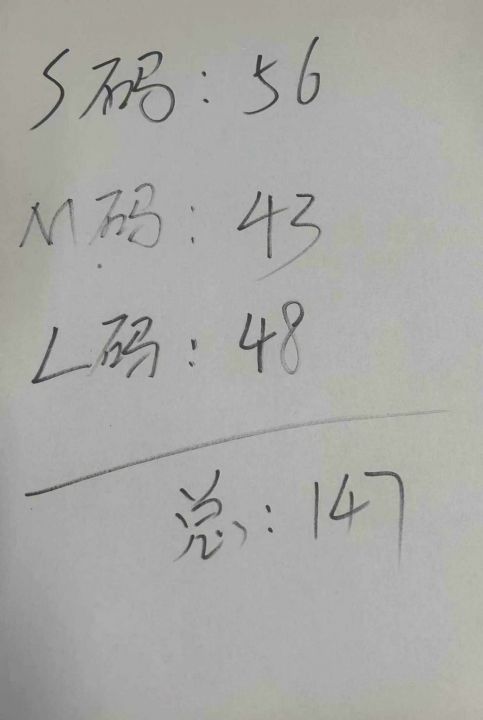 S码:56
M码:43
L码:48
总:147